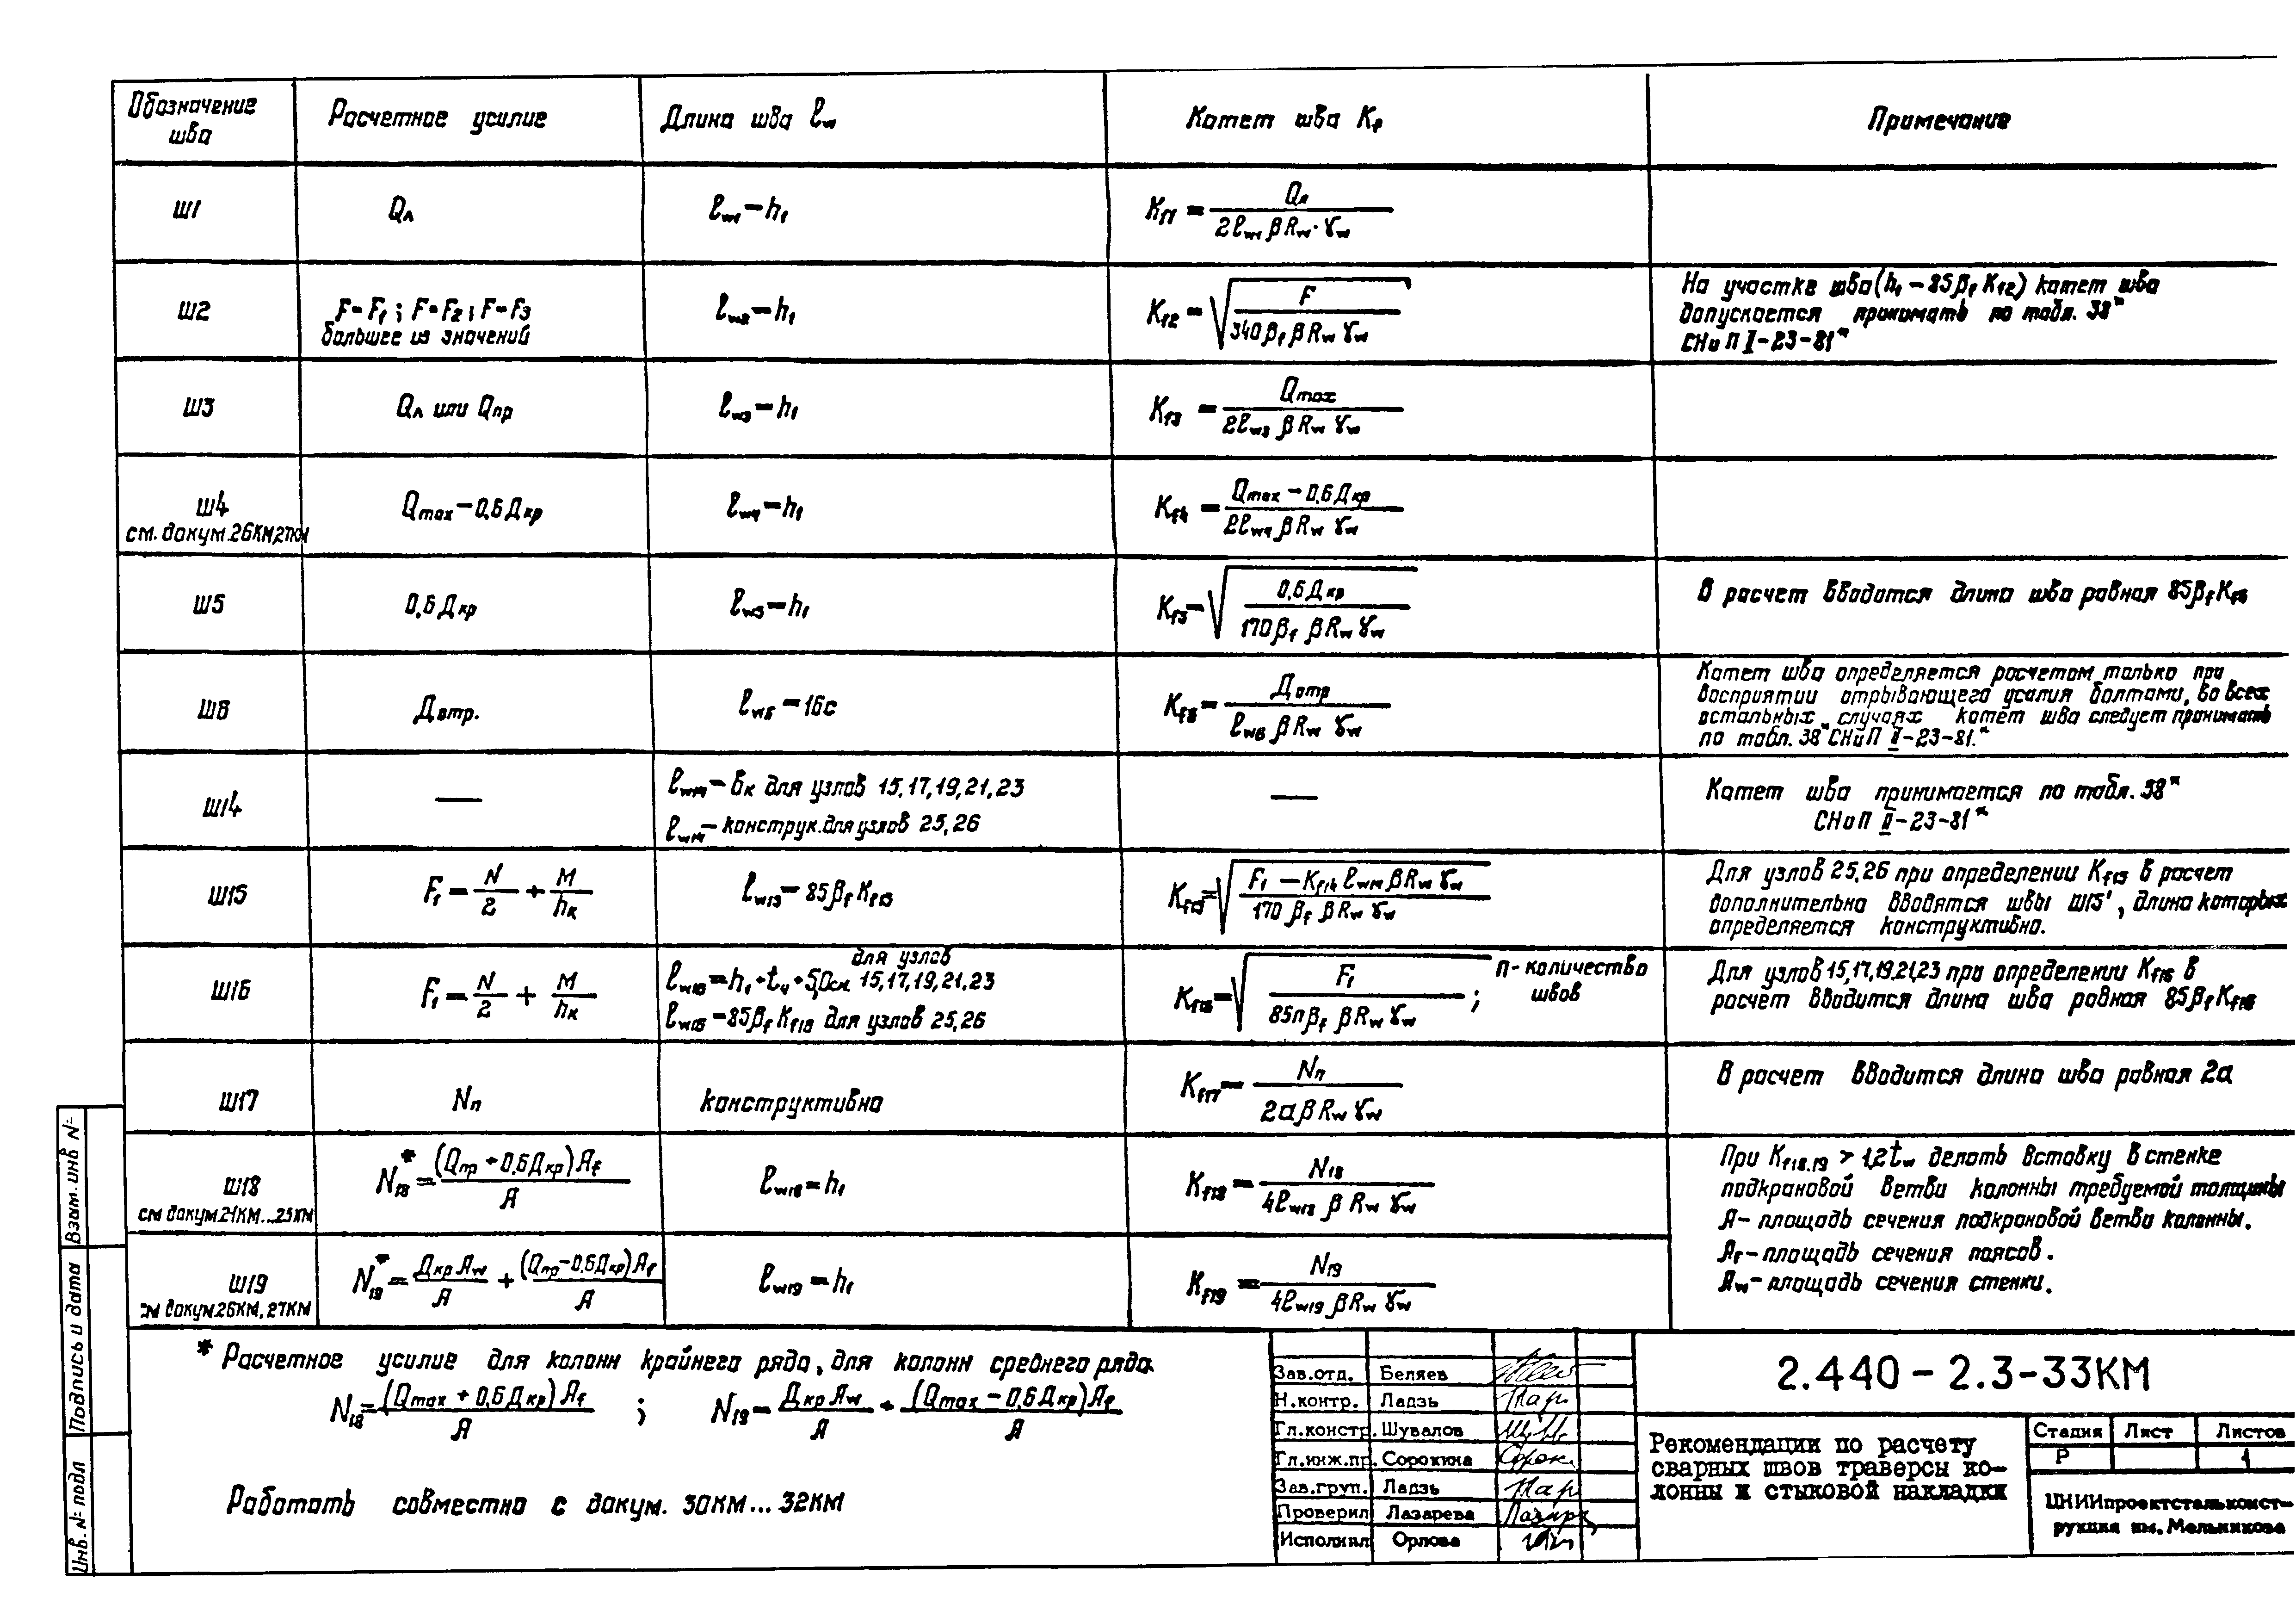 Обозначение шва
Расчетное усилие
Длина шва ℓw
Катет шва Kf
Примечание
Ш1
Qл
ℓw1 = h1
Kf1 = Qл / 2ℓw1 β Rw · γw
Ш2
F=F1; F=F2; F=F3
большее из значений
ℓw2 = h1
Kf2 = √ F / 340 βf β Rw γw
На участке шва (h1 – 85 βf Kf2) катет шва
допускается принимать по табл. 38*
СНиП II-23-81*
Ш3
Qл или Qпр
ℓw3 = h1
Kf3 = Qmax / 2ℓw3 β Rw γw
Ш4
см. докум. 26КМ, 27КМ
Qmax – 0,6 Дкр
ℓw4 = h1
Kf4 = Qmax – 0,6 Дкр / 2ℓw4 β Rw γw
Ш5
0,6 Дкр
ℓw5 = h1
Kf5 = √ 0,6 Дкр / 170 βf β Rw γw
В расчет вводится длина шва равная 85 βf Kf5
Ш6
Дотр.
ℓw6 = 16с
Kf6 = Дотр / ℓw6 β Rw γw
Катет шва определяется расчетом только при
восприятии отрывающего усилия болтами, во всех
остальных случаях катет шва следует принимать
по табл. 38* СНиП II-23-81.*
Ш14
—
ℓw14 = bк для узлов 15,17,19,21,23
ℓw14 – конструк. для узлов 25,26
—
Катет шва принимается по табл. 38*
СНиП II-23-81*
Ш15
F1 = N/2 + M/hк
ℓw15 = 85 βf Kf15
Kf15 = √ F1 – Kf14 ℓw14 β Rw γw / 170 βf β Rw γw
Для узлов 25,26 при определении Kf15 в расчет
дополнительно вводятся швы Ш15', длина которых
определяется конструктивно.
Ш16
F1 = N/2 + M/hк
для узлов
ℓw16 = h1 + tч + 5,0см 15,17,19,21,23
ℓw16 = 85 βf Kf16 для узлов 25,26
Kf16 = √ F1 / 85n βf β Rw γw ; n - количество швов
Для узлов 15,17,19,21,23 при определении Kf16 в
расчет вводится длина шва равная 85 βf Kf16
Ш17
Nп
конструктивно
Kf17 = Nп / 2a β Rw γw
В расчет вводится длина шва равная 2a
Ш18
см докум. 21КМ...25КМ
N18* = (Qпр + 0,6 Дкр) Af / A
ℓw18 = h1
Kf18 = N18 / 4ℓw18 β Rw γw
При Kf18,19 > 1,2 tw делать вставку в стенке
подкрановой ветви колонны требуемой толщины
A – площадь сечения подкрановой ветви колонны.
Af – площадь сечения поясов.
Aw – площадь сечения стенки.
Ш19
см докум. 26КМ, 27КМ
N19* = Дкр Aw / A + (Qпр – 0,6 Дкр) Af / A
ℓw19 = h1
Kf19 = N19 / 4ℓw19 β Rw γw
* Расчетное усилие для колонн крайнего ряда, для колонн среднего ряда
N18 = (Qmax + 0,6 Дкр) Af / A ; N19 = Дкр Aw / A + (Qmax – 0,6 Дкр) Af / A
Работать совместно с докум. 30КМ... 32КМ
Взам. инв №
Подпись и дата
Инв. № подл
Зав.отд. Беляев
Н.контр. Ладзь
Гл.констр. Шувалов
Гл.инж.пр. Сорокина
Зав.груп. Ладзь
Проверил Лазарева
Исполнил Орлова
2.440 – 2.3-33КМ
Рекомендации по расчету
сварных швов траверсы ко-
лонны и стыковой накладки
Стадия Лист Листов
Р 1
ЦНИИпроектстальконст-
рукция им. Мельникова